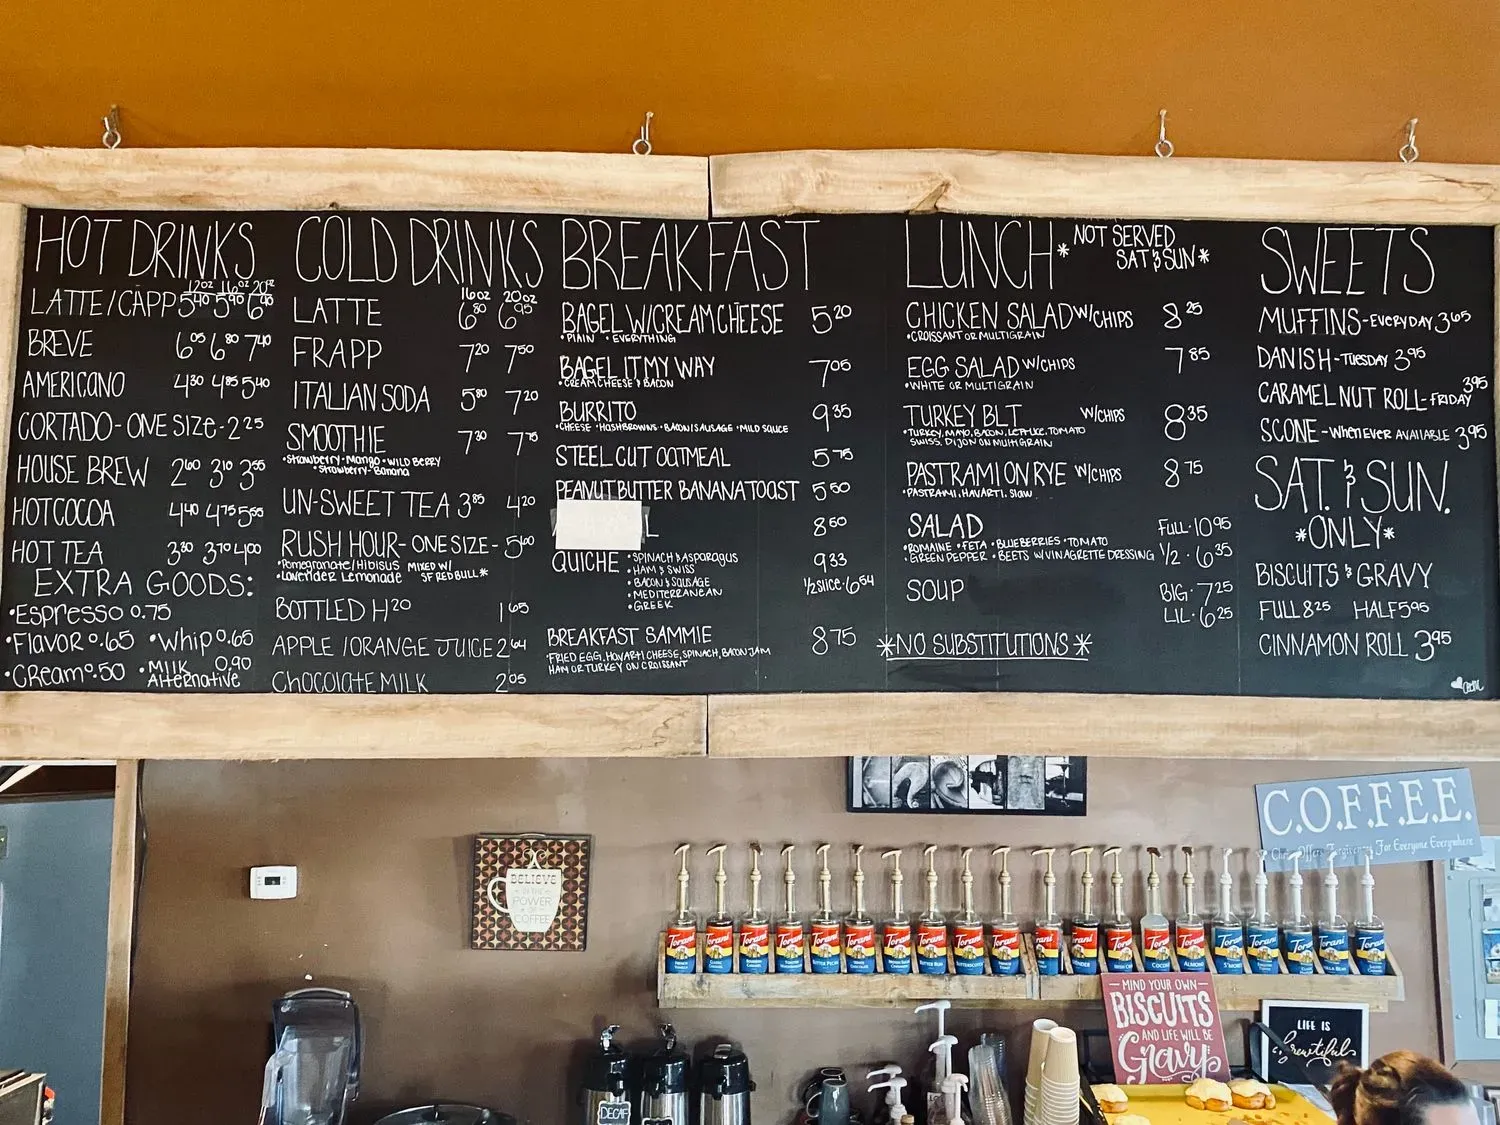 HOT DRINKS
12oz 16oz 20oz
LATTE/CAPP 5.40 5.90 6.40
BREVE 6.05 6.80 7.40
AMERICANO 4.30 4.85 5.40
CORTADO - ONE SIZE - 2.25
HOUSE BREW 2.60 3.10 3.55
HOT COCOA 4.40 4.75 5.55
HOT TEA 3.30 3.70 4.00
EXTRA GOODS:
•ESPRESSO 0.75
•FLAVOR 0.65 •WHIP 0.65
•CREAM 0.50 •MILK ALTERNATIVE 0.90
COLD DRINKS
16oz 20oz
LATTE 6.80 6.95
FRAPP 7.20 7.50
ITALIAN SODA 5.80 7.20
SMOOTHIE 7.30 7.75
•Strawberry •Mango •WILD BERRY
•Strawberry-Banana
UN-SWEET TEA 3.85 4.20
RUSH HOUR - ONE SIZE - 5.60
•Pomegranate/Hibiscus MIXED W/
•Lavender Lemonade SF RED BULL*
BOTTLED H20 1.65
APPLE /ORANGE JUICE 2.64
CHOCOLATE MILK 2.05
BREAKFAST
BAGEL W/CREAM CHEESE 5.20
•PLAIN •EVERYTHING
BAGEL IT MY WAY 7.05
•CREAM CHEESE & BACON
BURRITO 9.35
•CHEESE •HASHBROWNS •BACON/SAUSAGE •MILD SAUCE
STEEL CUT OATMEAL 5.75
PEANUT BUTTER BANANA TOAST 5.50
L 8.50
QUICHE 9.33
•SPINACH & ASPARAGUS 1/2 SLICE • 6.54
•HAM & SWISS
•BACON & SAUSAGE
•MEDITERRANEAN
•GREEK
BREAKFAST SAMMIE 8.75
•FRIED EGG, HAVARTI CHEESE, SPINACH, BACON JAM
HAM OR TURKEY ON CROISSANT
LUNCH *NOT SERVED
SAT & SUN*
CHICKEN SALAD W/CHIPS 8.25
•CROISSANT OR MULTIGRAIN
EGG SALAD W/CHIPS 7.85
•WHITE OR MULTIGRAIN
TURKEY BLT W/CHIPS 8.35
•TURKEY, MAYO, BACON, LETTUCE, TOMATO
SWISS, DIJON ON MULTIGRAIN
PASTRAMI ON RYE W/CHIPS 8.75
•PASTRAMI, HAVARTI, SLAW
SALAD FULL • 10.95
•ROMAINE •FETA •BLUEBERRIES •TOMATO
•GREEN PEPPER •BEETS W/VINAGRETTE DRESSING 1/2 • 6.35
SOUP BIG • 7.25
LIL • 6.25
*NO SUBSTITUTIONS*
SWEETS
MUFFINS - EVERYDAY 3.65
DANISH - TUESDAY 3.95
CARAMEL NUT ROLL - FRIDAY 3.95
SCONE - WHENEVER AVAILABLE 3.95
SAT. & SUN.
*ONLY*
BISCUITS & GRAVY
FULL 8.25 HALF 5.95
CINNAMON ROLL 3.95
C.O.F.F.E.E.
Christ Offers Forgiveness For Everyone Everywhere
BELIEVE
IN THE
POWER
OF
COFFEE
Torani Torani Torani Torani Torani Torani Torani Torani Torani Torani Torani Torani Torani Torani Torani Torani Torani Torani Torani
BUTTER PECAN
BUTTER RUM
BUTTERSCOTCH
COCONUT
ALMOND
S'MORES
MIND YOUR OWN
BISCUITS
AND LIFE WILL BE
Gravy
LIFE IS
DECAF